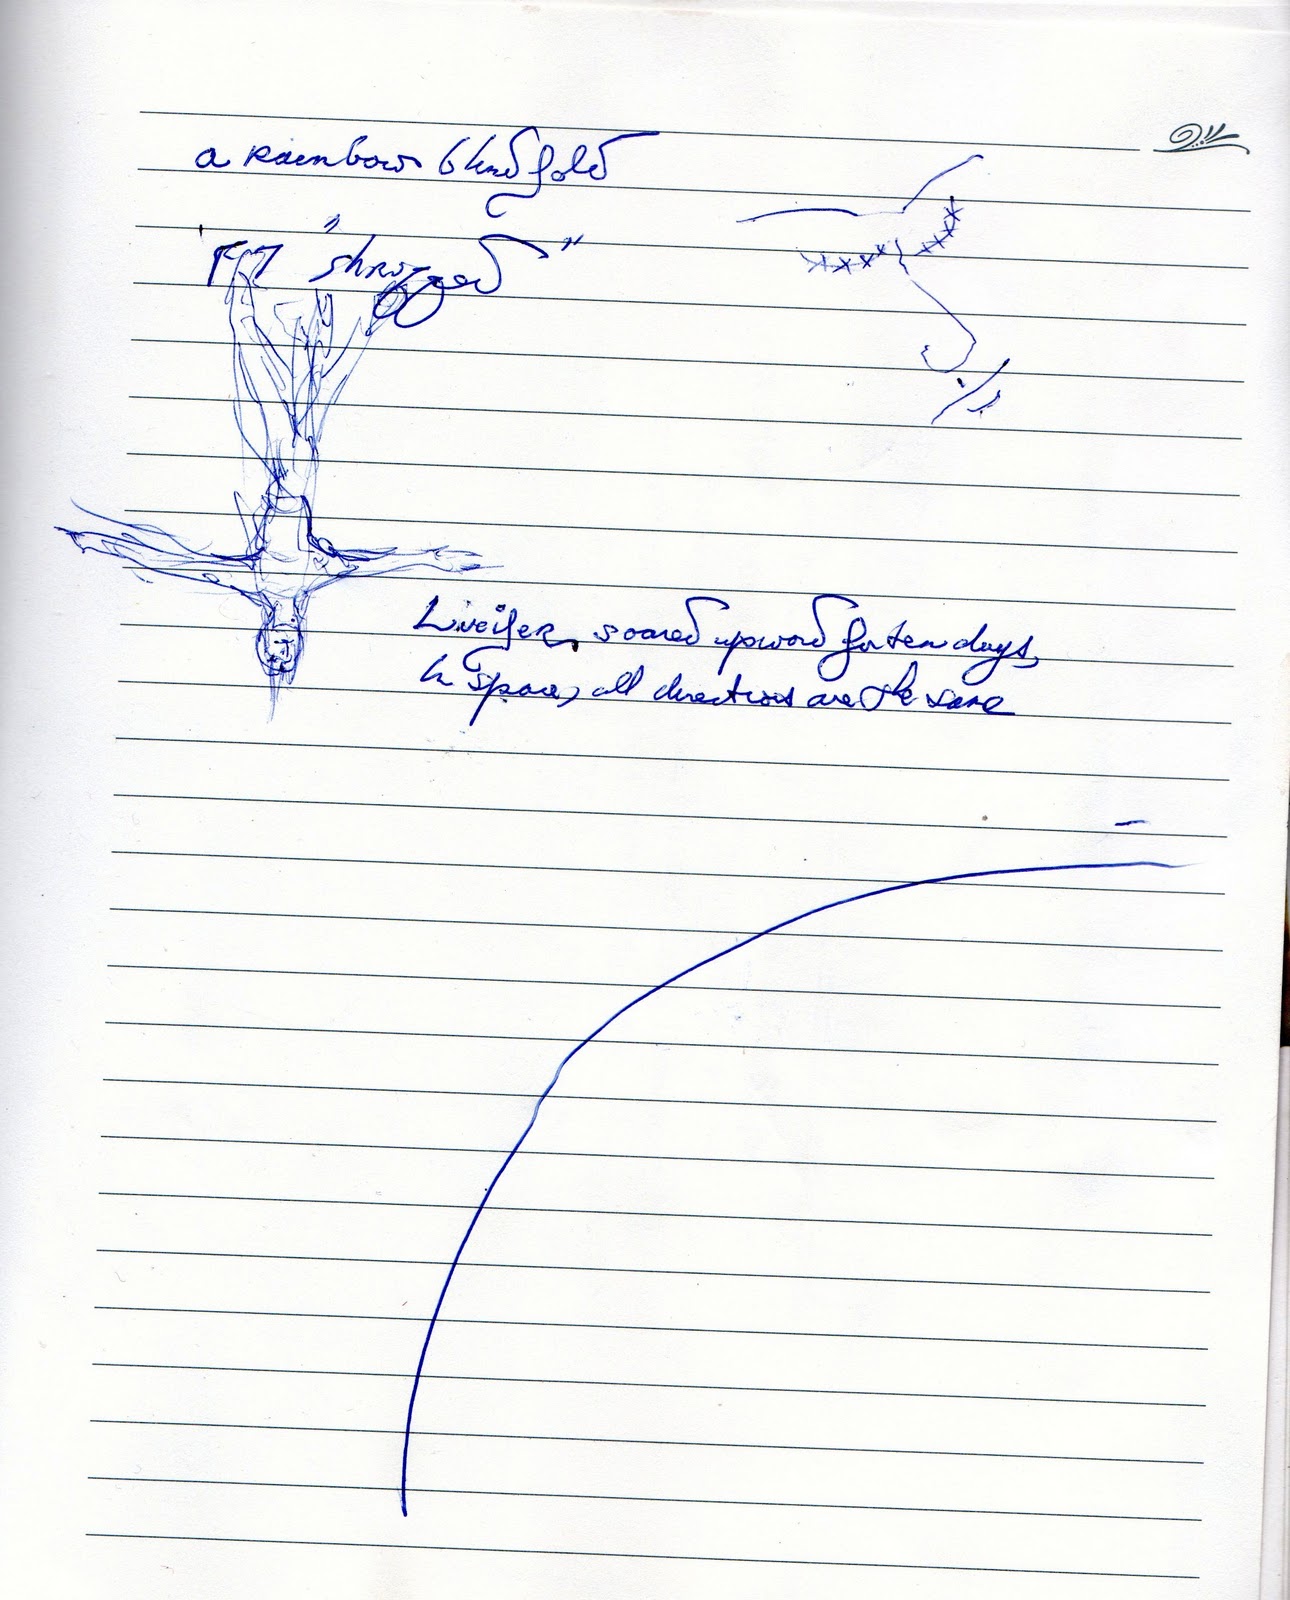 a rainbow blindfold
"shrugged"
Lucifer, soared upward for ten days,
In space, all directions are the same